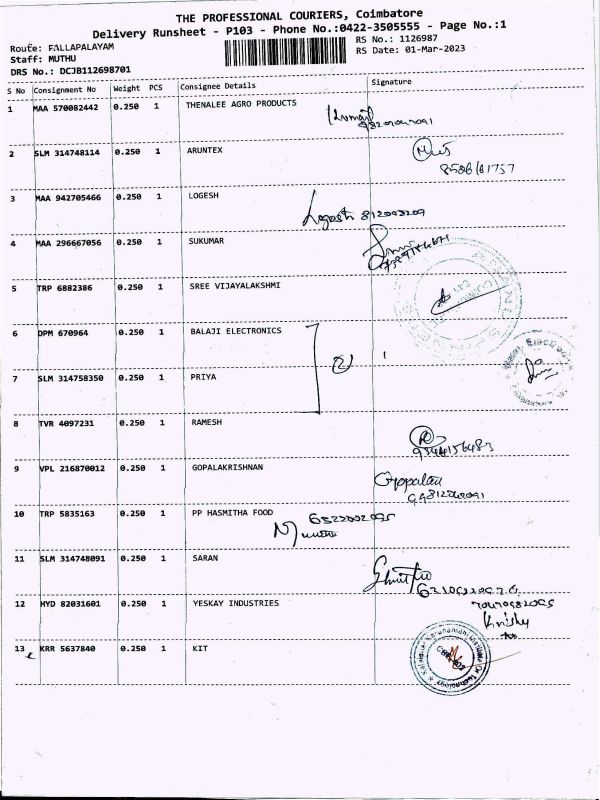 THE PROFESSIONAL COURIERS, Coimbatore
Delivery Runsheet - P103 - Phone No.:0422-3505555 - Page No.:1
Route: PALLAPALAYAM
RS No.: 1126987
Staff: MUTHU
RS Date: 01-Mar-2023
DRS No.: DCJB112698701
S No Consignment No Weight PCS Consignee Details Signature
1 MAA 570082442 0.250 1 THENALEE AGRO PRODUCTS
2 SLM 314748114 0.250 1 ARUNTEX
3 MAA 942705466 0.250 1 LOGESH
4 MAA 296667056 0.250 1 SUKUMAR
5 TRP 6882386 0.250 1 SREE VIJAYALAKSHMI
6 DPM 670964 0.250 1 BALAJI ELECTRONICS
7 SLM 314758350 0.250 1 PRIYA
8 TVR 4097231 0.250 1 RAMESH
9 VPL 216870012 0.250 1 GOPALAKRISHNAN
Gopalan
10 TRP 5835163 0.250 1 PP HASMITHA FOOD
11 SLM 314748091 0.250 1 SARAN
12 HYD 82031601 0.250 1 YESKAY INDUSTRIES
13 KRR 5637840 0.250 1 KIT